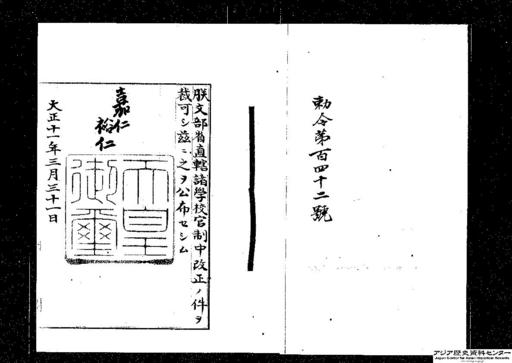 勅令第百四十二號
朕文部省直轄諸學校官制中改正ノ件ヲ
裁可シ茲ニ之ヲ公布セシム
嘉仁
裕仁
天皇
御璽
大正十一年三月三十一日
アジア歴史資料センター
Japan Center for Asian Historical Records